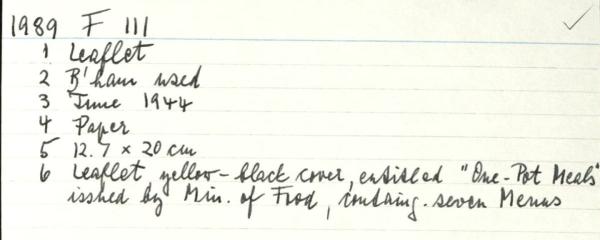 1989 F 111
1 Leaflet
2 B'ham used
3 June 1944
4 Paper
5 12.7 × 20 cm
6 Leaflet yellow-black cover, entitled "One-Pot Meals"
issued by Min. of Food, containg. seven Menus